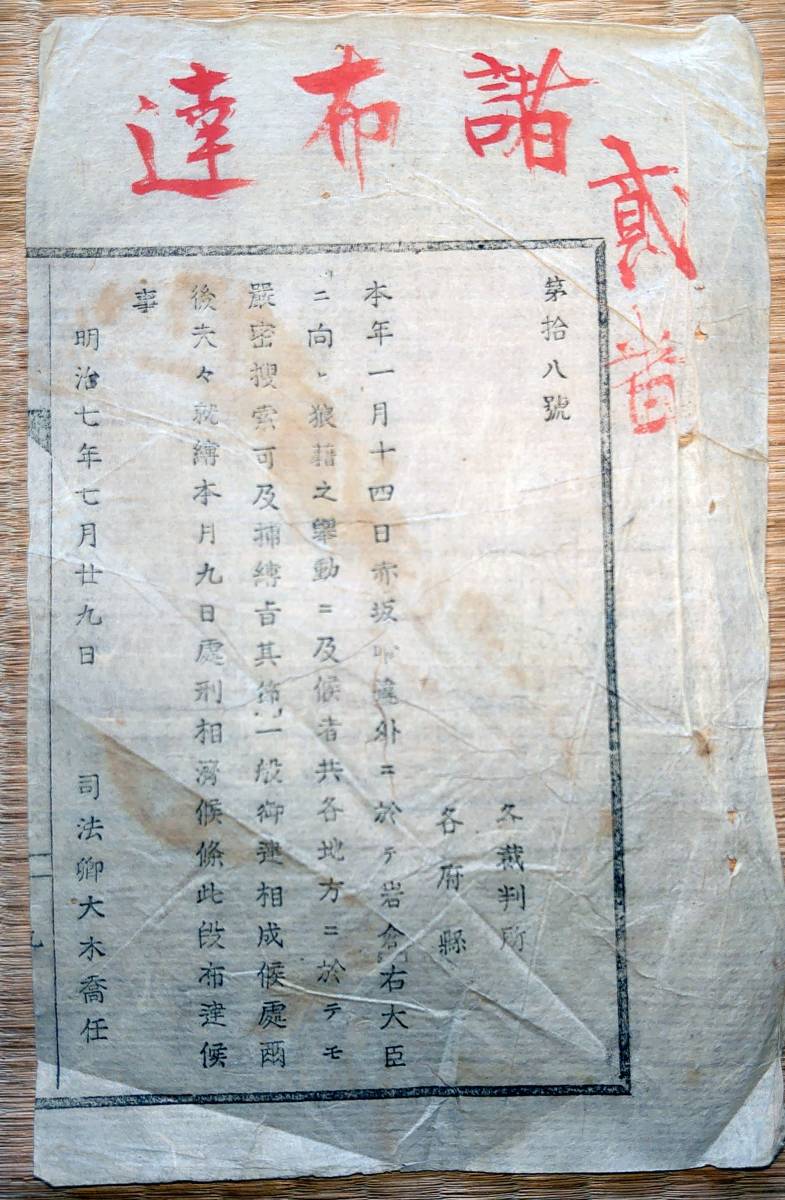 諸布達
貳番
第拾八號
各裁判所
各府縣
本年一月十四日赤坂喰違外ニ於テ岩倉右大臣
ニ向ヒ狼藉之擧動ニ及候者共各地方ニ於テモ
嚴密搜索可及捕縛旨其節一般御達相成候處爾
後夫々就縛本月九日處刑相濟候條此段布達候
事
明治七年七月廿九日
司法卿大木喬任